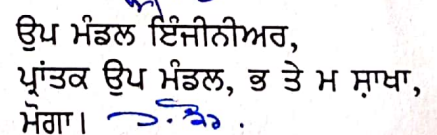 ਉਪ ਮੰਡਲ ਇੰਜੀਨੀਅਰ,
ਪ੍ਰਾਂਤਕ ਉਪ ਮੰਡਲ, ਭ ਤੇ ਮ ਸ਼ਾਖਾ,
ਮੋਗਾ।